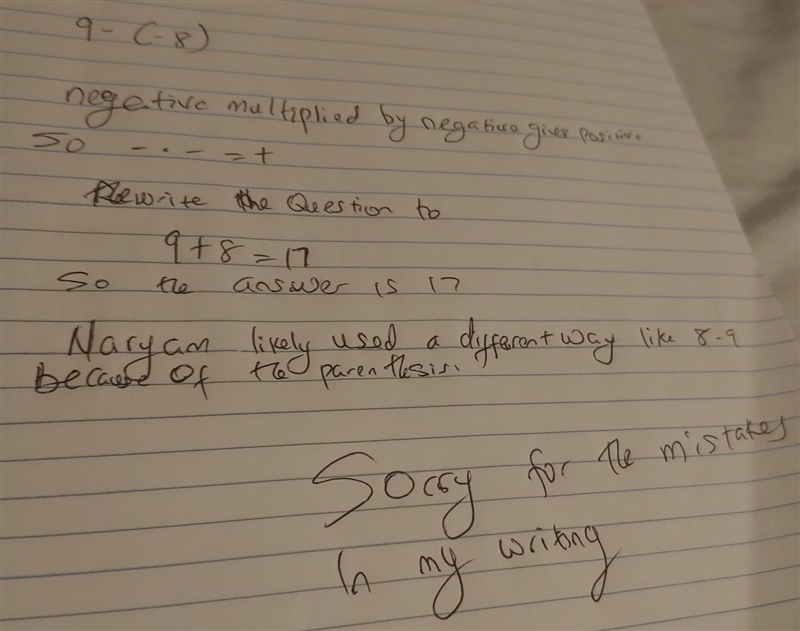 9 - (-8)
negative multiplied by negative gives positive.
So - · - = +
Rewrite the Question to
9 + 8 = 17
So the answer is 17
Maryam likely used a different way like 8-9
because of the parenthesis.
Sorry for the mistakes
In my writing